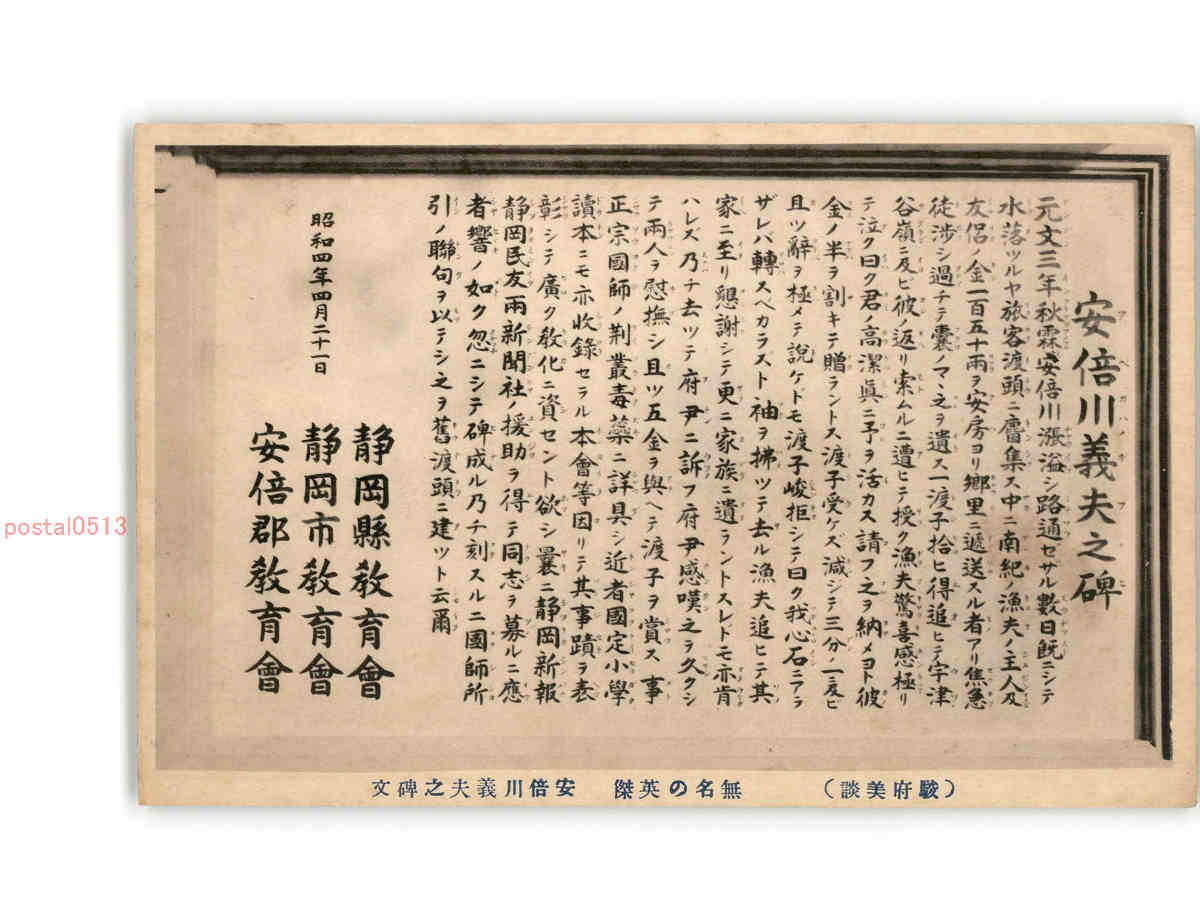 安倍川義夫之碑
元文三年秋霖安倍川漲溢シ路通セサル數日旣ニシテ
水落ツルヤ旅客渡頭ニ麕集ス中ニ南紀ノ漁夫ノ主人及
友侶ノ金一百五十兩ヲ安房ヨリ鄉里ニ遞送スル者アリ焦急
徒渉シ過チテ囊ノマヽ之ヲ遺ス一渡子拾ヒ得追ヒテ宇津
谷嶺ニ及ビ彼ノ返リ索ムルニ遭ヒテ授ク漁夫驚喜感極リ
テ泣ク曰ク君ノ高潔眞ニ予ヲ活カス請フ之ヲ納メヨト彼
金ノ半ヲ割キテ贈ラントス渡子受ケズ減ジテ三分ノ一ニ及ビ
且ツ辭ヲ極メテ說ケドモ渡子峻拒シテ曰ク我心石ニアラ
ザレバ轉スベカラスト袖ヲ拂ツテ去ル漁夫追ヒテ其
家ニ至リ懇謝シテ更ニ家族ニ遺ラントスレドモ亦肯
ハレズ乃チ去ツテ府尹ニ訴フ府尹感嘆之ヲ久クシ
テ兩人ヲ慰撫シ且ツ五金ヲ與ヘテ渡子ヲ賞ス事
正宗國師ノ荆叢毒蘂ニ詳具シ近者國定小學
讀本ニモ亦收錄セラル本會等因リテ其事蹟ヲ表
彰シテ廣ク敎化ニ資セント欲シ曩ニ靜岡新報
靜岡民友兩新聞社ノ援助ヲ得テ同志ヲ募ルニ應
者響ノ如ク忽ニシテ碑成ル乃チ刻スルニ國師所
引ノ聯句ヲ以テシ之ヲ舊渡頭ニ建ツト云爾
昭和四年四月二十一日
靜岡縣敎育會
靜岡市敎育會
安倍郡敎育會
(駿府美談) 無名の英傑 安倍川義夫之碑文
postal0513